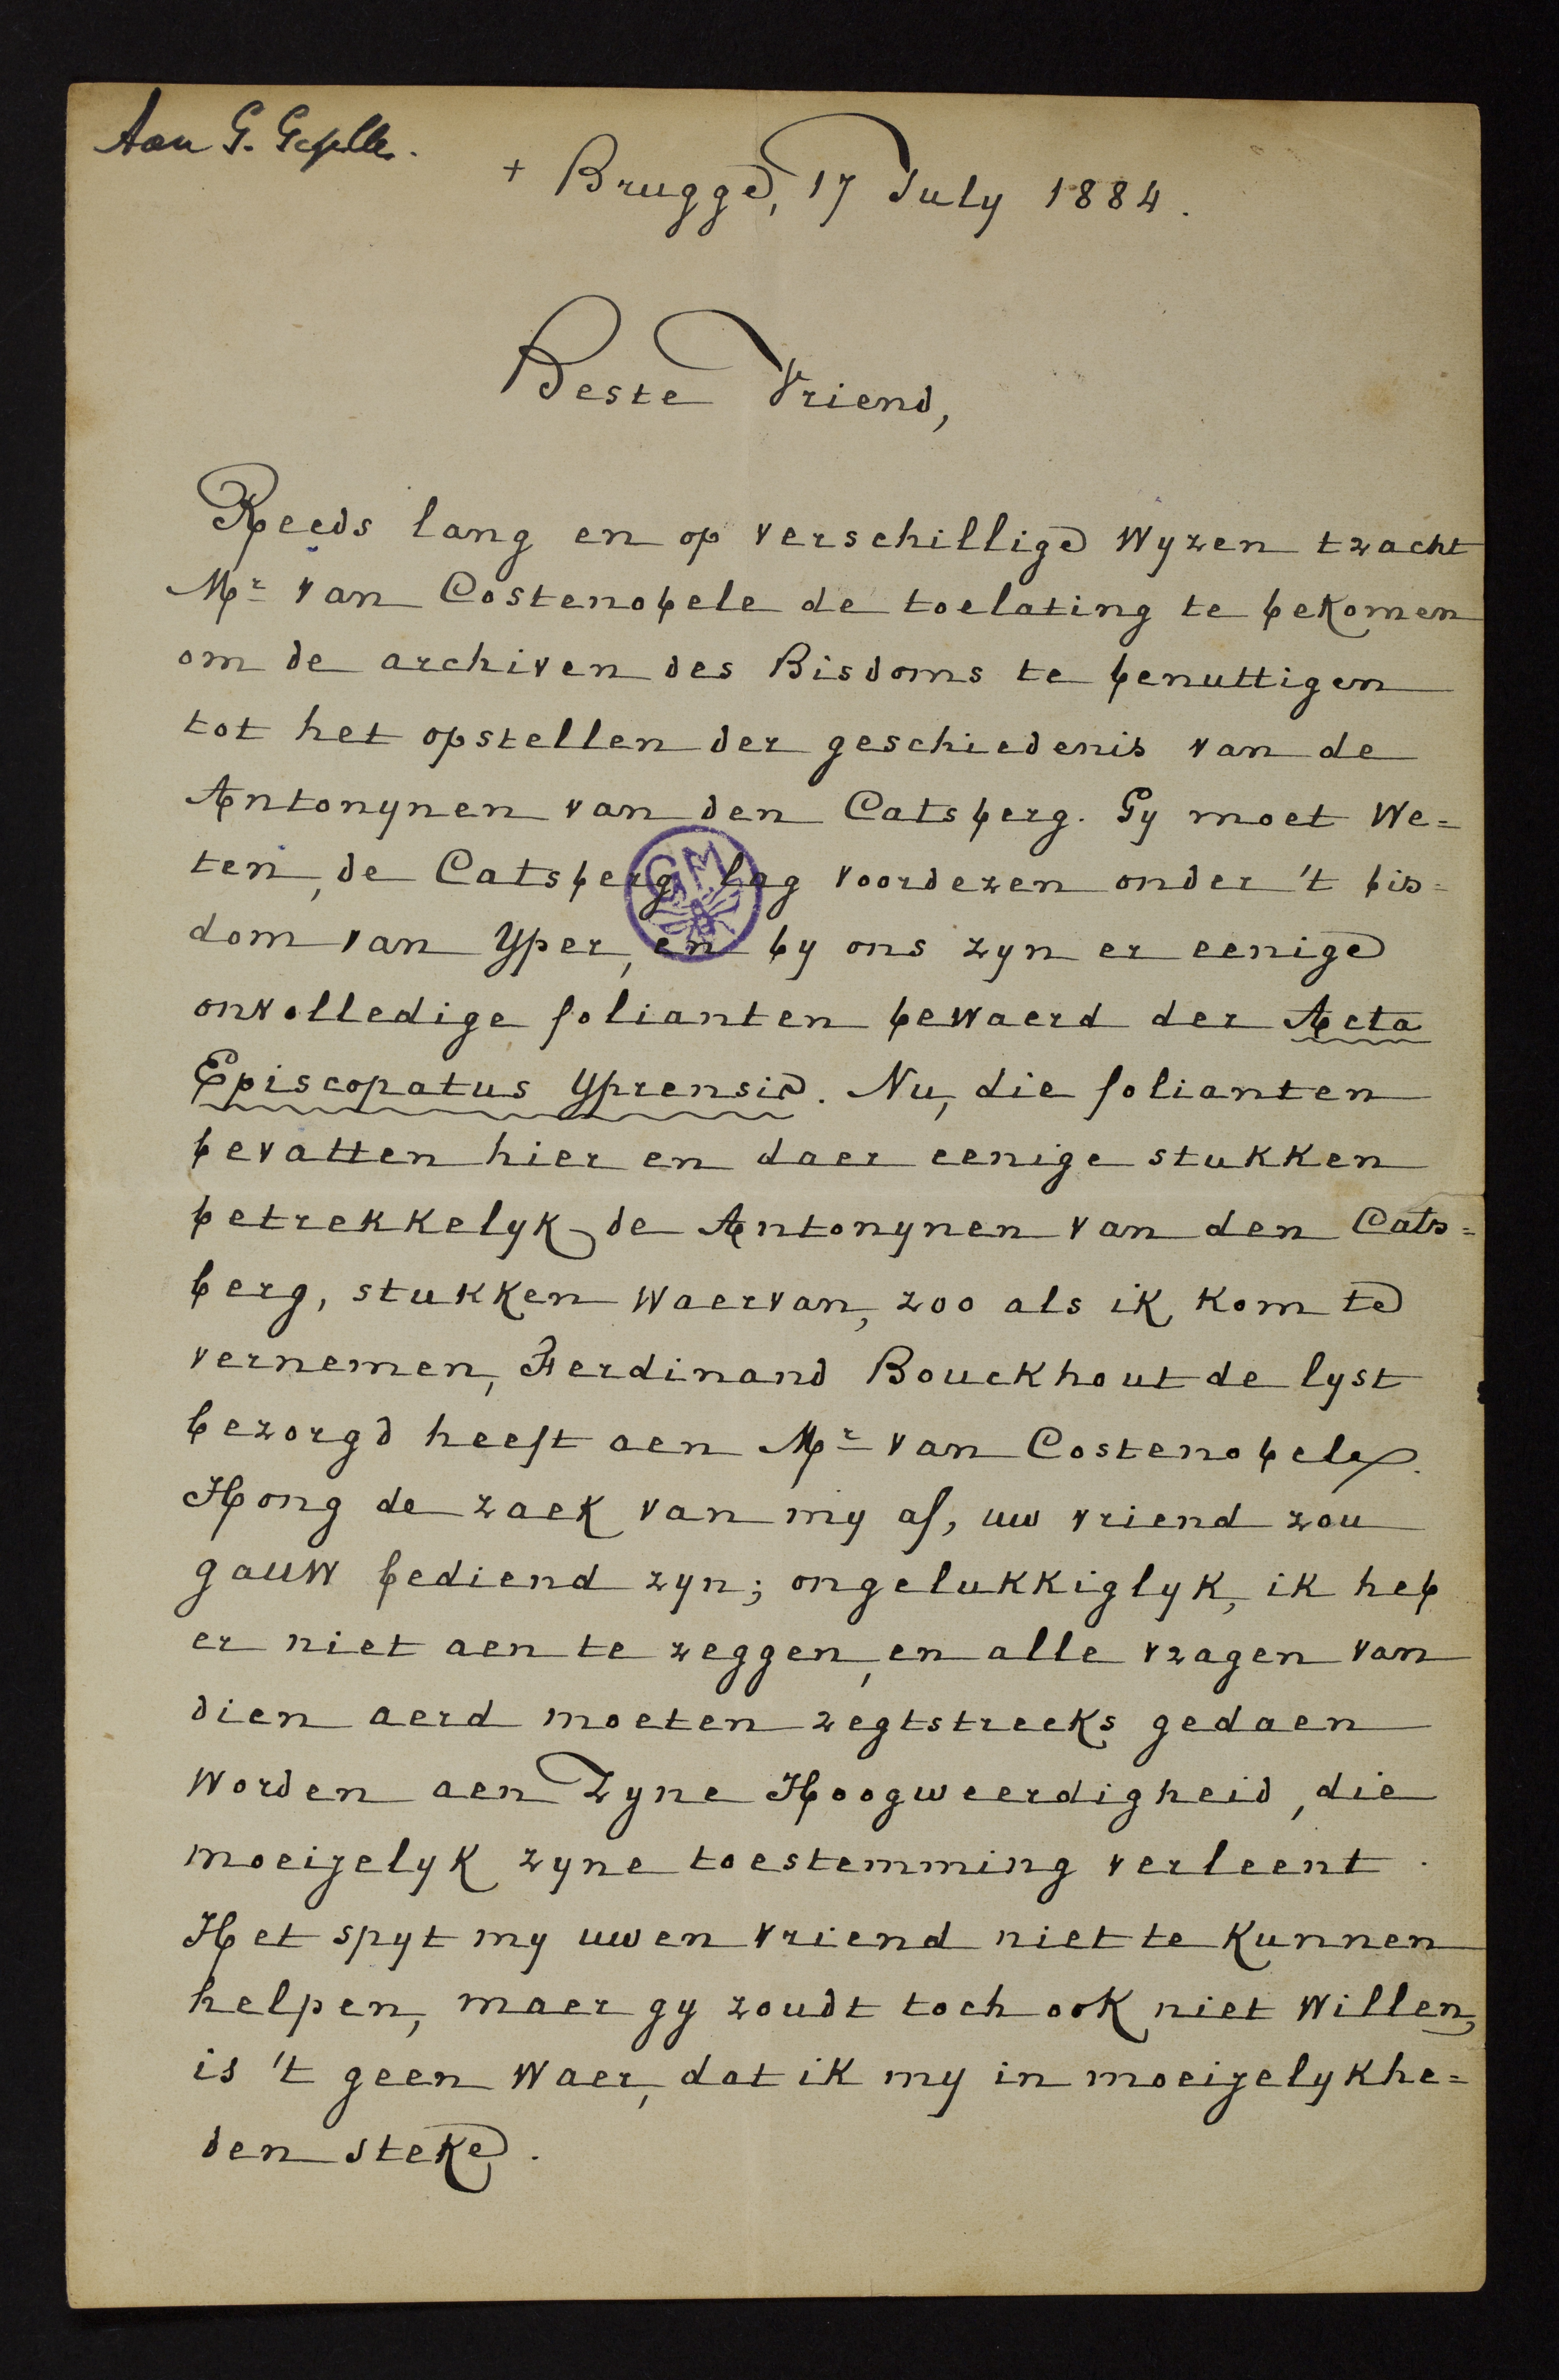 Aan G. Gezelle.
+ Brugge, 17 July 1884.
Beste Vriend,
Reeds lang en op verschillige wyzen tracht
Mr van Costenobele de toelating te bekomen
om de archiven des Bisdoms te benuttigen
tot het opstellen der geschiedenis van de
Antonynen van den Catsberg. Gy moet we=
ten, de Catsberg lag voordezen onder 't bis=
dom van Yper, en by ons zyn er eenige
onvolledige folianten bewaerd der Acta
Episcopatus Yprensis. Nu, die folianten
bevatten hier en daer eenige stukken
betrekkelyk de Antonynen van den Cats=
berg, stukken waervan, zoo als ik kom te
vernemen, Ferdinand Bouckhout de lyst
bezorgd heeft aen Mr van Costenobele.
Hong de zaek van my af, uw vriend zou
gauw bediend zyn; ongelukkiglyk, ik heb
er niet aen te zeggen, en alle vragen van
dien aerd moeten regtstreeks gedaen
worden aen Zyne Hoogweerdigheid, die
moeijelyk zyne toestemming verleent.
Het spyt my uwen vriend niet te kunnen
helpen, maer gy zoudt toch ook niet willen,
is 't geen waer, dat ik my in moeijelykhe=
den steke.
GM